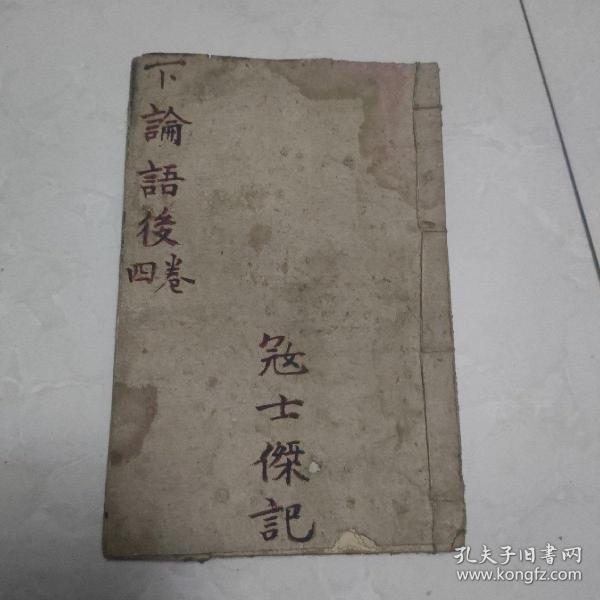 下論語後
卷四
㓂士傑記
孔夫子旧书网
www.kongfz.com